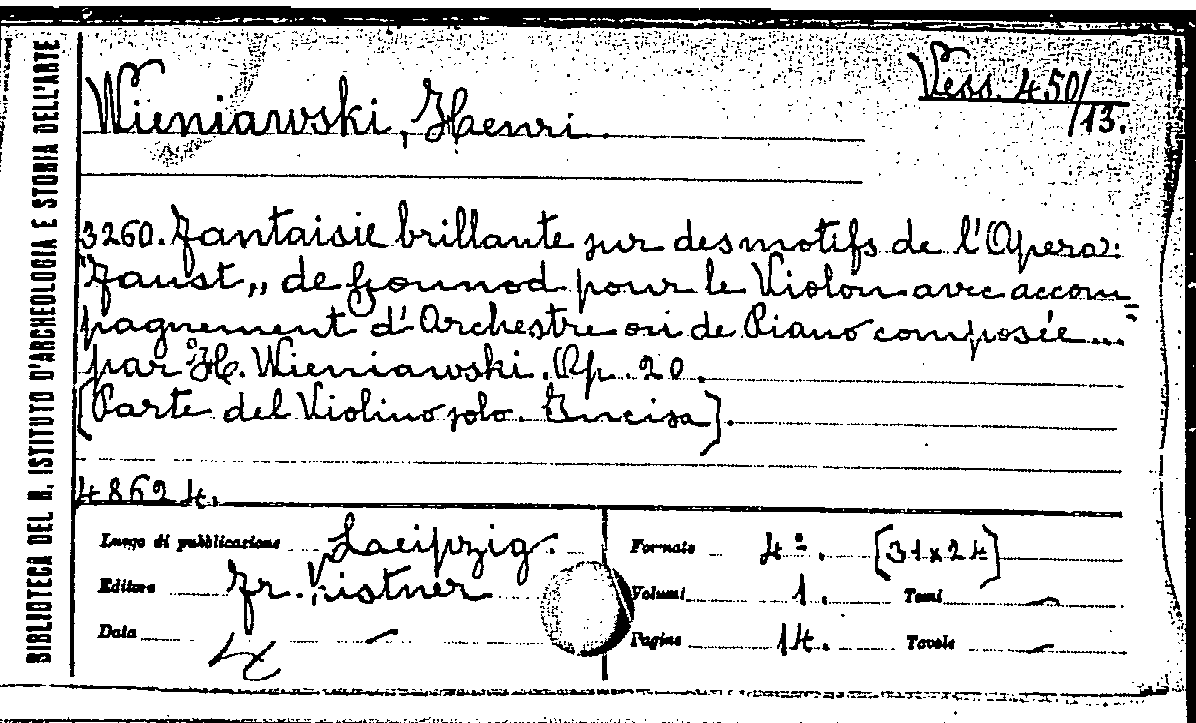 BIBLIOTECA DEL R. ISTITUTO D'ARCHEOLOGIA E STORIA DELL'ARTE
Vess. 450/
/13.
Wieniawski, Henri.
3260. Fantaisie brillante sur des motifs de l'Opera:
"Faust„ de Gounod pour le Violon avec accom=
pagnement d'Orchestre ou de Piano composée...
par H. Wieniawski. Op. 20.
[Parte del Violino solo. Incisa].
48624.
Luogo di pubblicazione Laeipzig.
Editore Fr. Kistner
Data —
Formato 4°. [31x24]
Volumi 1. Tomi —
Pagine 14. Tavole —